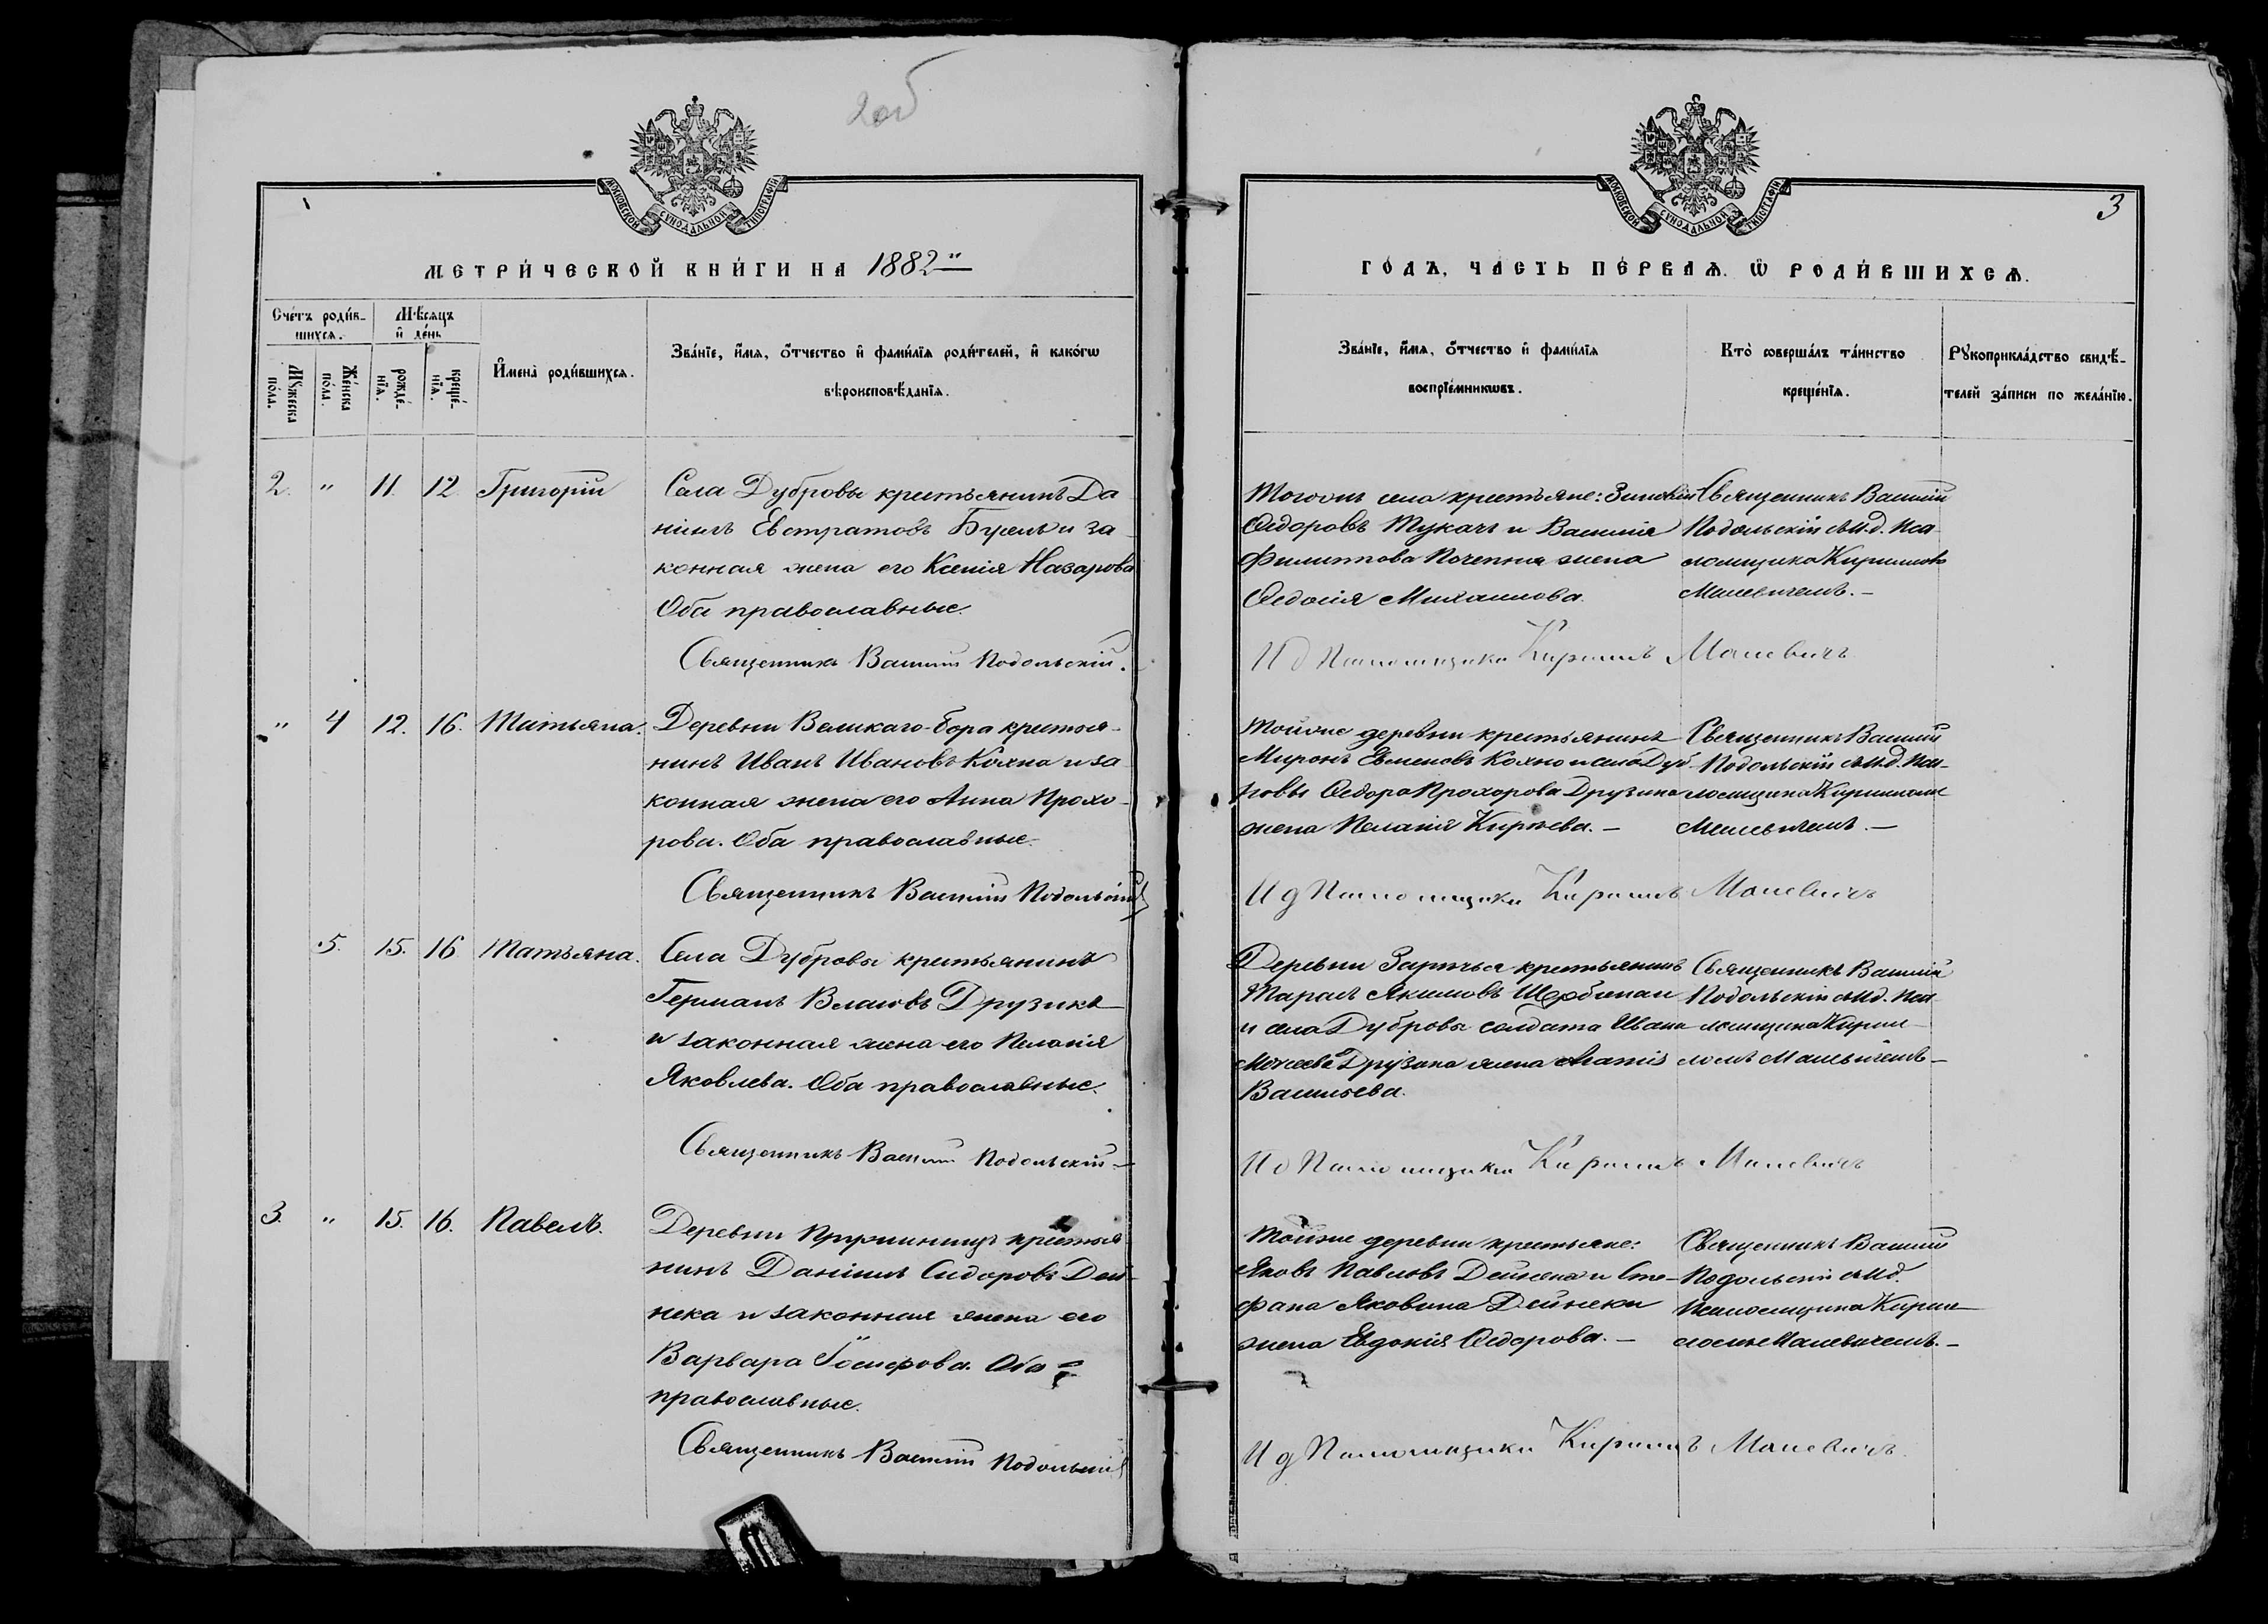 2 об
МОСКОВСКОЙ СѴНОДАЛЬНОЙ ТИПОГРАФІИ
МЕТРИ́ЧЕСКОЙ КНИ́ГИ НА 1882"
Сче́тъ роди́в-
шихсѧ.
Мѣ́сѧцъ
и҆ де́нь
Мꙋ́жеска
по́ла.
Же́нска
по́ла.
рожде́-
нїѧ.
креще́-
нїѧ.
И҆мена̀ роди́вшихсѧ.
Зва́нїе, и҆́мѧ, ѻ҆́тчество и҆ фами́лїѧ роди́телей, и҆ како́гѡ
вѣроисповѣ́данїѧ.
2. " 11. 12 Григорій
Села Дубровы крестьянинъ Да
ніилъ Евстратовъ и за
конная жена его Ксенія Назарова
Оба православные.
Священникъ Василій Подольскій.
" 4 12. 16. Татьяна.
Деревни Великаго-бора крестья-
нинъ Иванъ Ивановъ Кохно и за
конная жена его Анна Прохо-
рова. Оба православные.
Священникъ Василій Подольскій
5. 15. 16 Татьяна.
Села Дубровы крестьянинъ
Германъ Власовъ Друзикъ
и законная жена его Пелагія
Яковлева. Оба православные.
Священникъ Василій Подольскій
3. " 15. 16. Павелъ.
Деревни крестья
нинъ Даніилъ Сидоровъ Дей-
нека и законная жена его
Варвара Іосифова. Оба
православные.
Священникъ Василій Подольскій
МОСКОВСКОЙ СѴНОДАЛЬНОЙ ТИПОГРАФІИ
3
ГО́ДЪ, ЧА́СТЬ ПЕ́РВАѦ. Ѽ РОДИ́ВШИХСѦ.
Зва́нїе, и҆́мѧ, ѻ҆́тчество и҆ фами́лїѧ
воспрїе́мникѡвъ.
Кто̀ соверша́лъ та́инство
креще́нїѧ.
Рꙋкоприкла́дство свидѣ́-
телей за́писи по жела́нїю.
села крестьяне: Зиновій
Ѳедоровъ Тукачъ и Василія
Филиппова жена
Ѳедосія Михаилова.
Священникъ Василій
Подольскій съ И.д. Пса
ломщика Кирилломъ
Малевичемъ. –
И д Псаломщика Кириллъ Малевичъ
Тойже деревни крестьянинъ
Миронъ Кохно и села Дуб-
ровы Ѳедора Прохорова Друзика
жена Пелагія Кирѣева. –
Священникъ Василій
Подольскій съ И.д. Пса-
ломщика Кирилломъ
Малевичемъ. –
И д Псаломщика Кириллъ Малевичъ
Деревни Зарѣчья крестьянинъ
Тарасъ Якимовъ
и села Дубровы солдата Ивана
Моисеева Друзика жена
Васильева.
Священникъ Василій
Подольскій съ И.д. Пса
ломщика Кирил-
ломъ Малевичемъ –
И д Псаломщика Кириллъ Малевичъ
Тойже деревни крестьяне:
Яковъ Павловъ Дейнека и Сте-
фана Яковина Дейнеки
жена Евдокія Ѳедорова. –
Священникъ Василій
Подольскій съ И.д.
Псаломщика Кирил-
ломъ Малевичемъ. –
И д Псаломщика Кириллъ Малевичъ.